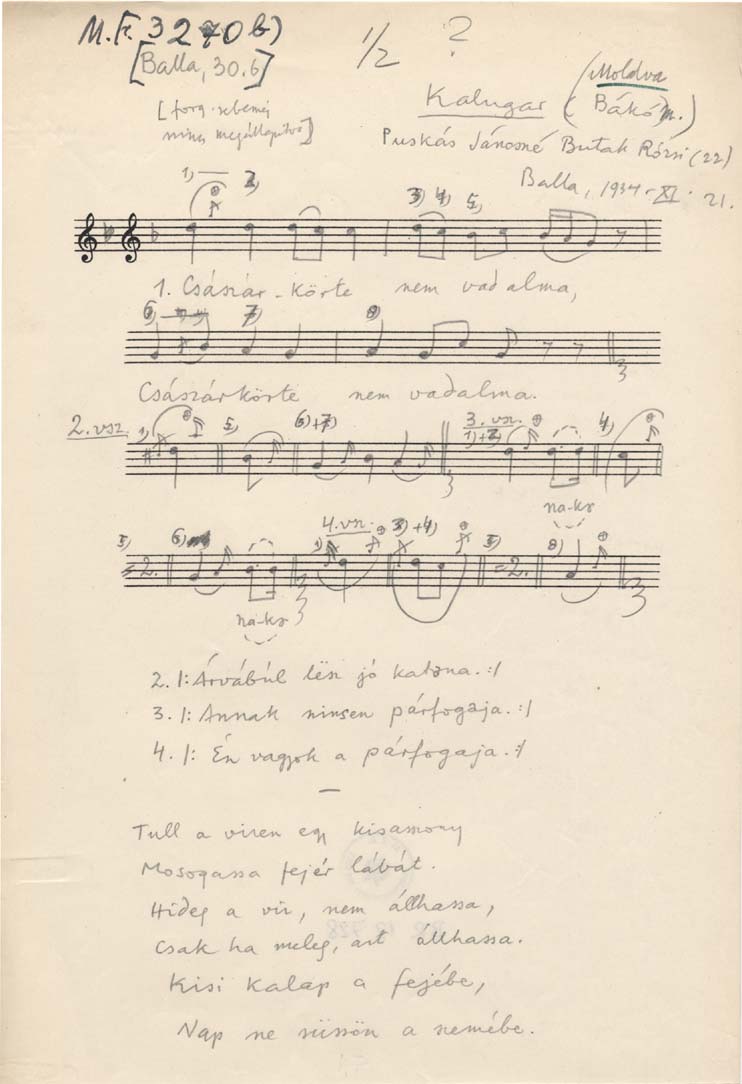 M.F. 3270 b)
1/2 ?
[Balla, 30.6]
(Moldva
Kalugar (Bákó m.)
[forg. sebesség
nincs megállapítva]
Puskás Jánosné Butak Rózsi (22)
Balla, 1934. XI. 21.
1) 2) 3) 4) 5)
1. Császár-körte nem vadalma,
6) 7) 8)
Császárkörte nem vadalma.
2. vsz. 1) 5) 6)+7) 3. vsz. 1)+2) 4)
na-kə
5) =2. 6) 4. vsz. 1) 3)+4) 5) =2. 8)
na-kə
2. |: Árvábúl lësz jó katona. :|
3. |: Annak ninsen párfogaja. :|
4. |: Én vagyok a párfogaja. :|
Tull a vizen egy kisasszony
Mosogassa fejér lábát.
Hideg a viz, nem állhassa,
Csak ha meleg, azt állhassa.
Kisi kalap a fejébe,
Nap ne süssön a szemébe.